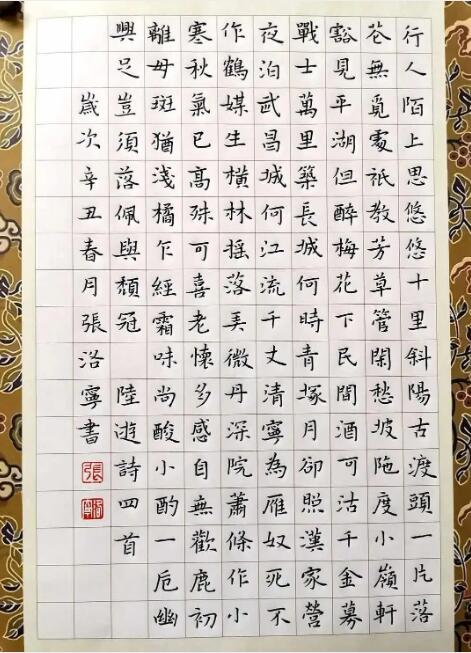 行人陌上思悠悠十里斜陽古渡頭一片落
花無覓處祇教芳草管閑愁坡陁度小嶺軒
豁見平湖但醉梅花下民間酒可沽千金募
戰士萬里築長城何時青塚月卻照漢家營
夜泊武昌城何江流千丈清寧為雁奴死不
作鶴媒生橫林搖落美微丹深院蕭條作小
寒秋氣已高殊可喜老懷多感自無歡鹿初
離母斑猶淺橘乍經霜味尚酸小酌一卮幽
興足豈須落佩與頹冠 陸遊詩四首
歲次辛丑春月張洛寧書
張
洛寧